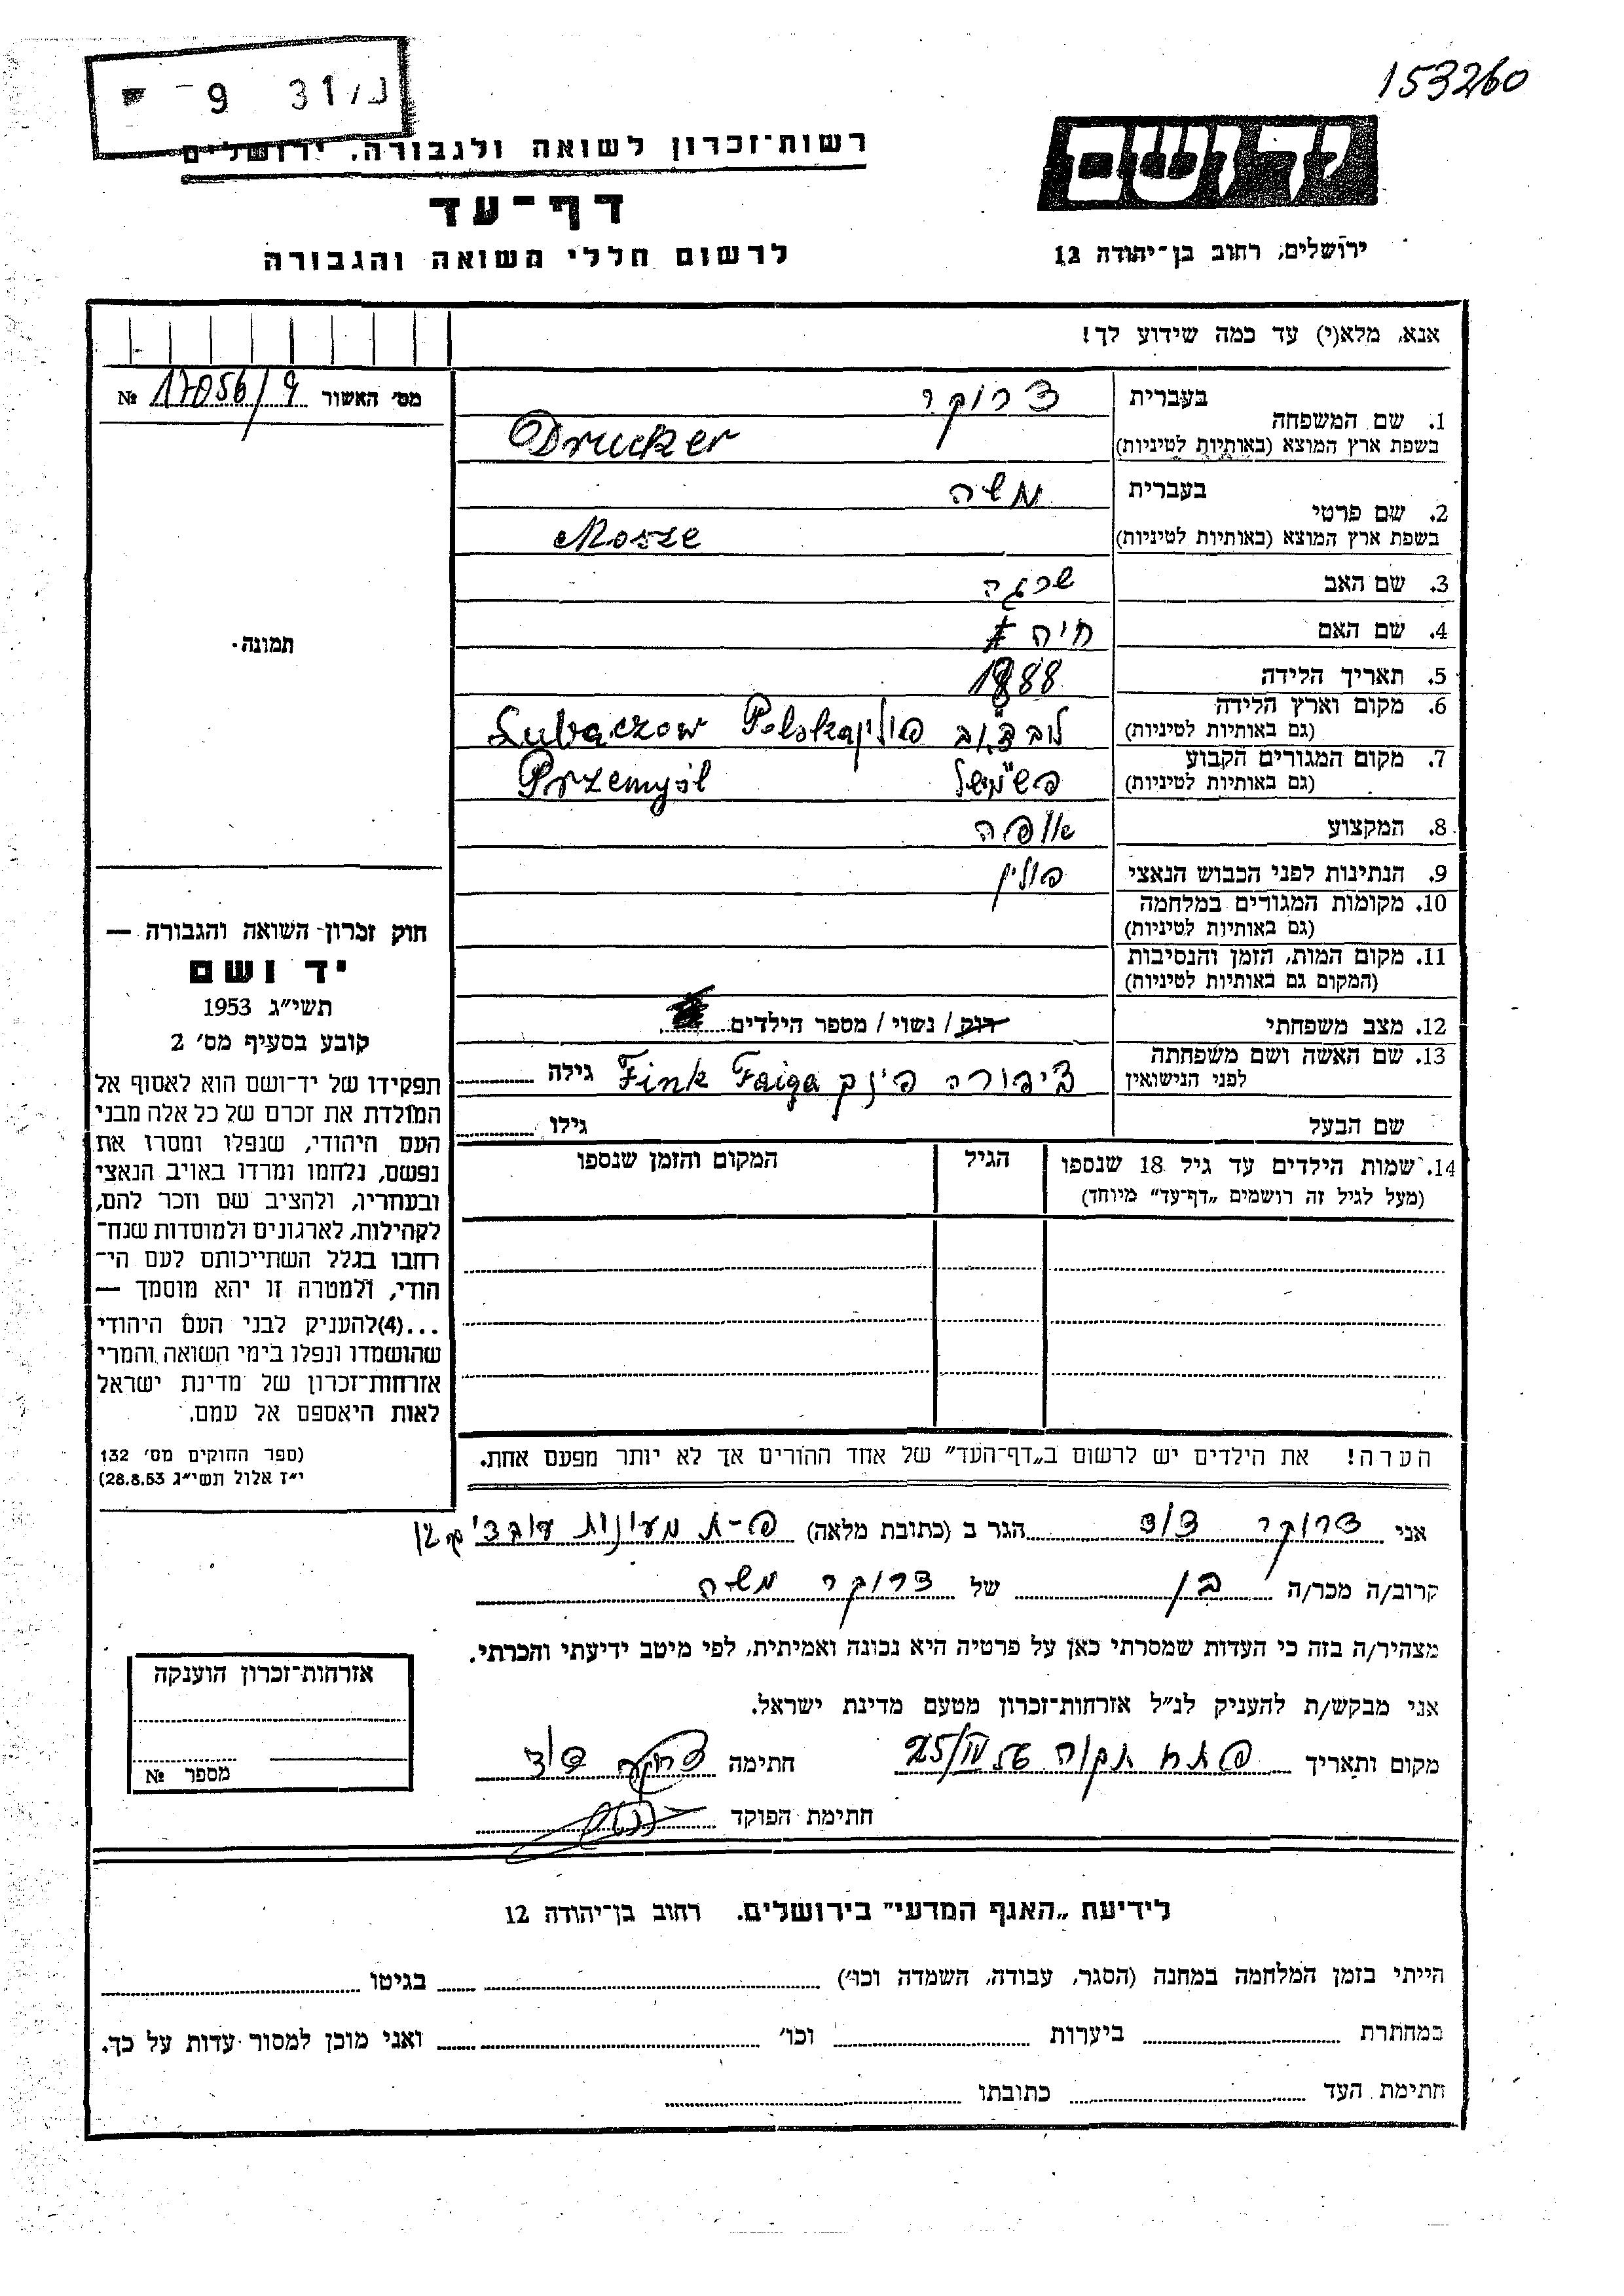 153260
נ/31 9 -
יד ושם
רשות־זכרון לשואה ולגבורה, ירושלים
דף־עד
לרשום חללי השואה והגבורה
ירושלים, רחוב בן־יהודה 12
אנא, מלא(י) עד כמה שידוע לך!
מס׳ האשור 17056/9 №
תמונה.
1. שם המשפחה בעברית דרוקר
בשפת ארץ המוצא (באותיות לטיניות) Drucker
2. שם פרטי בעברית משה
בשפת ארץ המוצא (באותיות לטיניות) Mosze
3. שם האב שרגא
4. שם האם חיה
5. תאריך הלידה 1888
6. מקום וארץ הלידה (גם באותיות לטיניות) לובצ'וב פולין Lubaczow Polska
7. מקום המגורים הקבוע (גם באותיות לטיניות) פשמישל Przemyśl
8. המקצוע אופה
9. הנתינות לפני הכבוש הנאצי פולין
10. מקומות המגורים במלחמה (גם באותיות לטיניות)
11. מקום המות, הזמן והנסיבות (המקום גם באותיות לטיניות)
12. מצב משפחתי רוק / נשוי / מספר הילדים
13. שם האשה ושם משפחתה לפני הנישואין ציפורה פינק Fink Faiga גילה
שם הבעל גילו
14. שמות הילדים עד גיל 18 שנספו הגיל המקום והזמן שנספו
(מעל לגיל זה רושמים „דף־עד” מיוחד)
הערה! את הילדים יש לרשום ב„דף־העד” של אחד ההורים אך לא יותר מפעם אחת.
חוק זכרון השואה והגבורה —
יד ושם
תשי״ג 1953
קובע בסעיף מס׳ 2
תפקידו של יד־ושם הוא לאסוף אל
המולדת את זכרם של כל אלה מבני
העם היהודי, שנפלו ומסרו את
נפשם, נלחמו ומרדו באויב הנאצי
ובעוזריו, ולהציב שם וזכר להם,
לקהילות, לארגונים ולמוסדות שנח־
רבו בגלל השתייכותם לעם הי־
הודי, ולמטרה זו יהא מוסמך —
...(4) להעניק לבני העם היהודי
שהושמדו ונפלו בימי השואה והמרי
אזרחות־זכרון של מדינת ישראל
לאות היאספם אל עמם.
(ספר החוקים מס׳ 132
י״ז אלול תשי״ג 28.8.53)
אני דרוקר דוד הגר ב (כתובת מלאה) פ-ת מעונות עובדים
קרוב/ה מכר/ה בן של דרוקר משה
מצהיר/ה בזה כי העדות שמסרתי כאן על פרטיה היא נכונה ואמיתית, לפי מיטב ידיעתי והכרתי.
אני מבקש/ת להעניק לנ״ל אזרחות־זכרון מטעם מדינת ישראל.
מקום ותאריך פתח תקוה 25/IV 56 חתימה דרוקר דוד
חתימת הפוקד
אזרחות־זכרון הוענקה
מספר №
לידיעת „האגף המדעי” בירושלים. רחוב בן־יהודה 12
הייתי בזמן המלחמה במחנה (הסגר, עבודה, השמדה וכו׳) בגיטו
במחתרת ביערות וכו׳ ואני מוכן למסור עדות על כך.
חתימת העד כתובתו